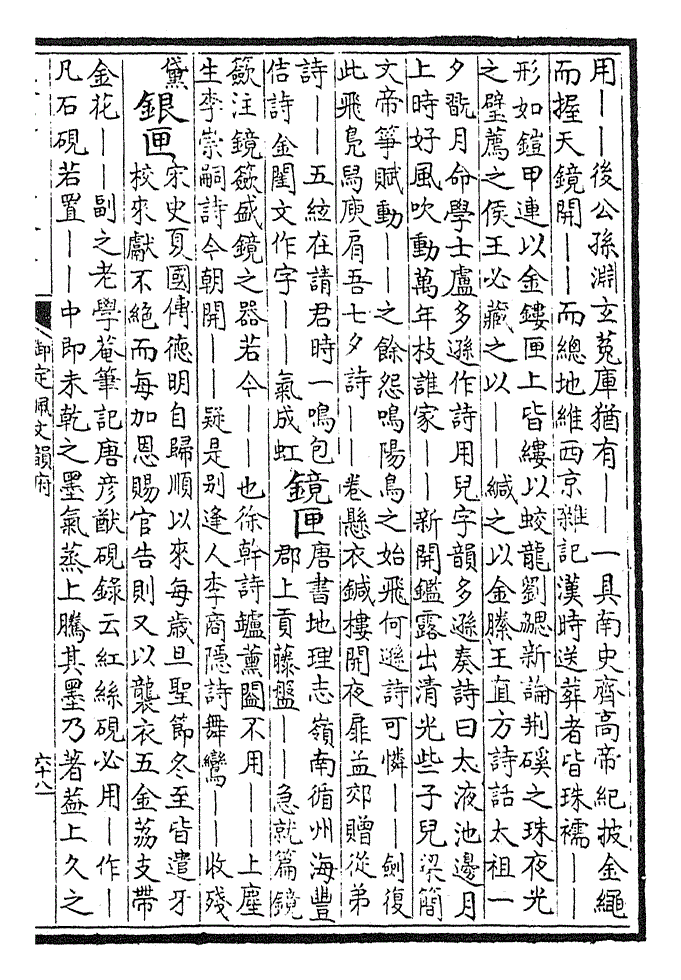 用——後公孫淵玄菟庫猶有——一具南史齊高帝紀披金繩
而握天鏡開——而總地維西京雜記漢時送葬者皆珠襦——
形如鎧甲連以金鏤匣上皆縷以蛟龍劉勰新論荆磎之珠夜光
之璧薦之侯王必藏之以——緘之以金縢王直方詩話太祖一
夕翫月命學士盧多遜作詩用兒字韻多遜奏詩曰太液池邊月
上時好風吹動萬年枝誰家——新開鑑露出清光些子兒梁簡
文帝箏賦動——之餘怨鳴陽鳥之始飛何遜詩可憐——劍復
此飛鳬舄庾肩吾七夕詩——卷懸衣鍼樓開夜扉孟郊贈從弟
詩——五絃在請君時一鳴包
佶詩金閨文作字——氣成虹
鏡匣
唐書地理志嶺南循州海豐
郡上貢藤盤——急就篇鏡
籨注鏡籨盛鏡之器若今——也徐幹詩鑪薰闔不用——上塵
生李崇嗣詩今朝開——疑是别逢人李商隱詩舞鸞——收殘
黛
銀匣
宋史夏國傳德明自歸順以來每歲旦聖節冬至皆遣牙
校來獻不絶而每加恩賜官告則又以襲衣五金荔支帶
金花——副之老學菴筆記唐彦猷硯錄云紅絲硯必用——作—
凡石硯若置——中即未乾之墨氣蒸上騰其墨乃著葢上久之
御定佩文韻府
六十八